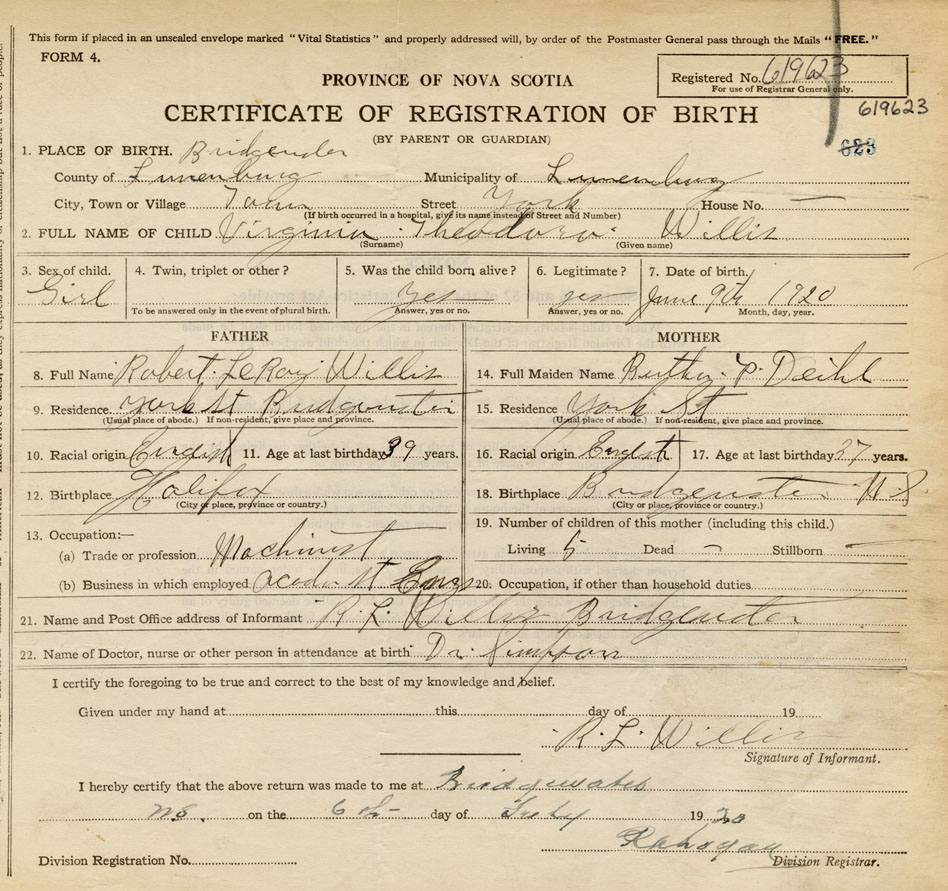 This form if placed in an unsealed envelope marked "Vital Statistics" and properly addressed will, by order of the Postmaster General pass through the Mails "FREE."
FORM 4.
PROVINCE OF NOVA SCOTIA
Registered No. 619623
For use of Registrar General only.
CERTIFICATE OF REGISTRATION OF BIRTH
619623
(BY PARENT OR GUARDIAN)
623
1. PLACE OF BIRTH.
County of Lunenburg Municipality of Lunenburg
City, Town or Village Town Street York House No. —
(If birth occurred in a hospital, give its name instead of Street and Number)
2. FULL NAME OF CHILD Virginia Theodora Willis
(Surname) (Given name)
3. Sex of child. 4. Twin, triplet or other? 5. Was the child born alive? 6. Legitimate? 7. Date of birth.
Girl Yes yes June 9th 1920
To be answered only in the event of plural birth. Answer, yes or no. Answer, yes or no. Month, day, year.
FATHER MOTHER
8. Full Name Robert LeRoy Willis 14. Full Maiden Name P. Deihl
9. Residence. York St Bridgewater 15. Residence York St
(Usual place of abode.) If non-resident, give place and province. (Usual place of abode.) If non-resident, give place and province.
10. Racial origin English 11. Age at last birthday 39 years. 16. Racial origin English 17. Age at last birthday 37 years.
12. Birthplace Halifax 18. Birthplace Bridgewater N S
(City or place, province or country.) (City or place, province or country.)
13. Occupation:— 19. Number of children of this mother (including this child.)
(a) Trade or profession Machinist Living 5 Dead — Stillborn —
(b) Business in which employed 20. Occupation, if other than household duties
21. Name and Post Office address of Informant R. L. Willis Bridgewater
22. Name of Doctor, nurse or other person in attendance at birth Dr. Simpson
I certify the foregoing to be true and correct to the best of my knowledge and belief.
Given under my hand at this day of 19
R. L. Willis
Signature of Informant.
I hereby certify that the above return was made to me at Bridgewater
NS. on the 6th day of July 1920
Division Registration No. Division Registrar.